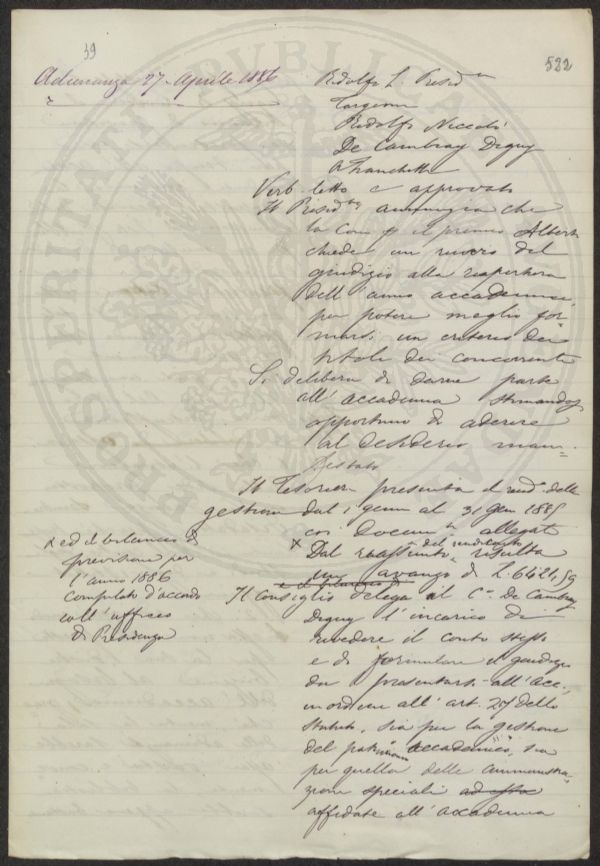 39
522
Adunanza 27 Aprile 1886
Ridolfi L. Presid.te
Targioni
Ridolfi Niccolò
De Cambray Digny
Franchetti
Verb. letto e approvato
Il Presid.te annunzia che
la Com. p. il premio Alberti
chiede un rinvio del
giudizio alla riapertura
dell'anno accademico,
per potere meglio for
marsi un criterio dei
titoli dei concorrenti
Si delibera di darne parte
all'accademia stimandosi
opportuno di aderire
al desiderio mani=
festato
Il Tesoriere presenta il rend.o della
gestione dal 1 genn al 31 1885
coi Docum.ti allegati
x ed il bilancio di
previsione per
l'anno 1886
compilato d'accordo
coll'uffizio
di Presidenza
x Dal riassunto del resulta
un avanzo di L. 6421,59
Il Consiglio delega al C.e De Cambray
Digny l'incarico di
rivedere il conto stesso
e di formulare il giudizio
da presentarsi all'Acc.,
in ordine all'art. 27 dello
statuto, sia per la gestione
del patrimonio accademico, sia
per quella delle amministra=
zioni speciali
affidate all'accademia
PROSPERITATI PUBLICAE